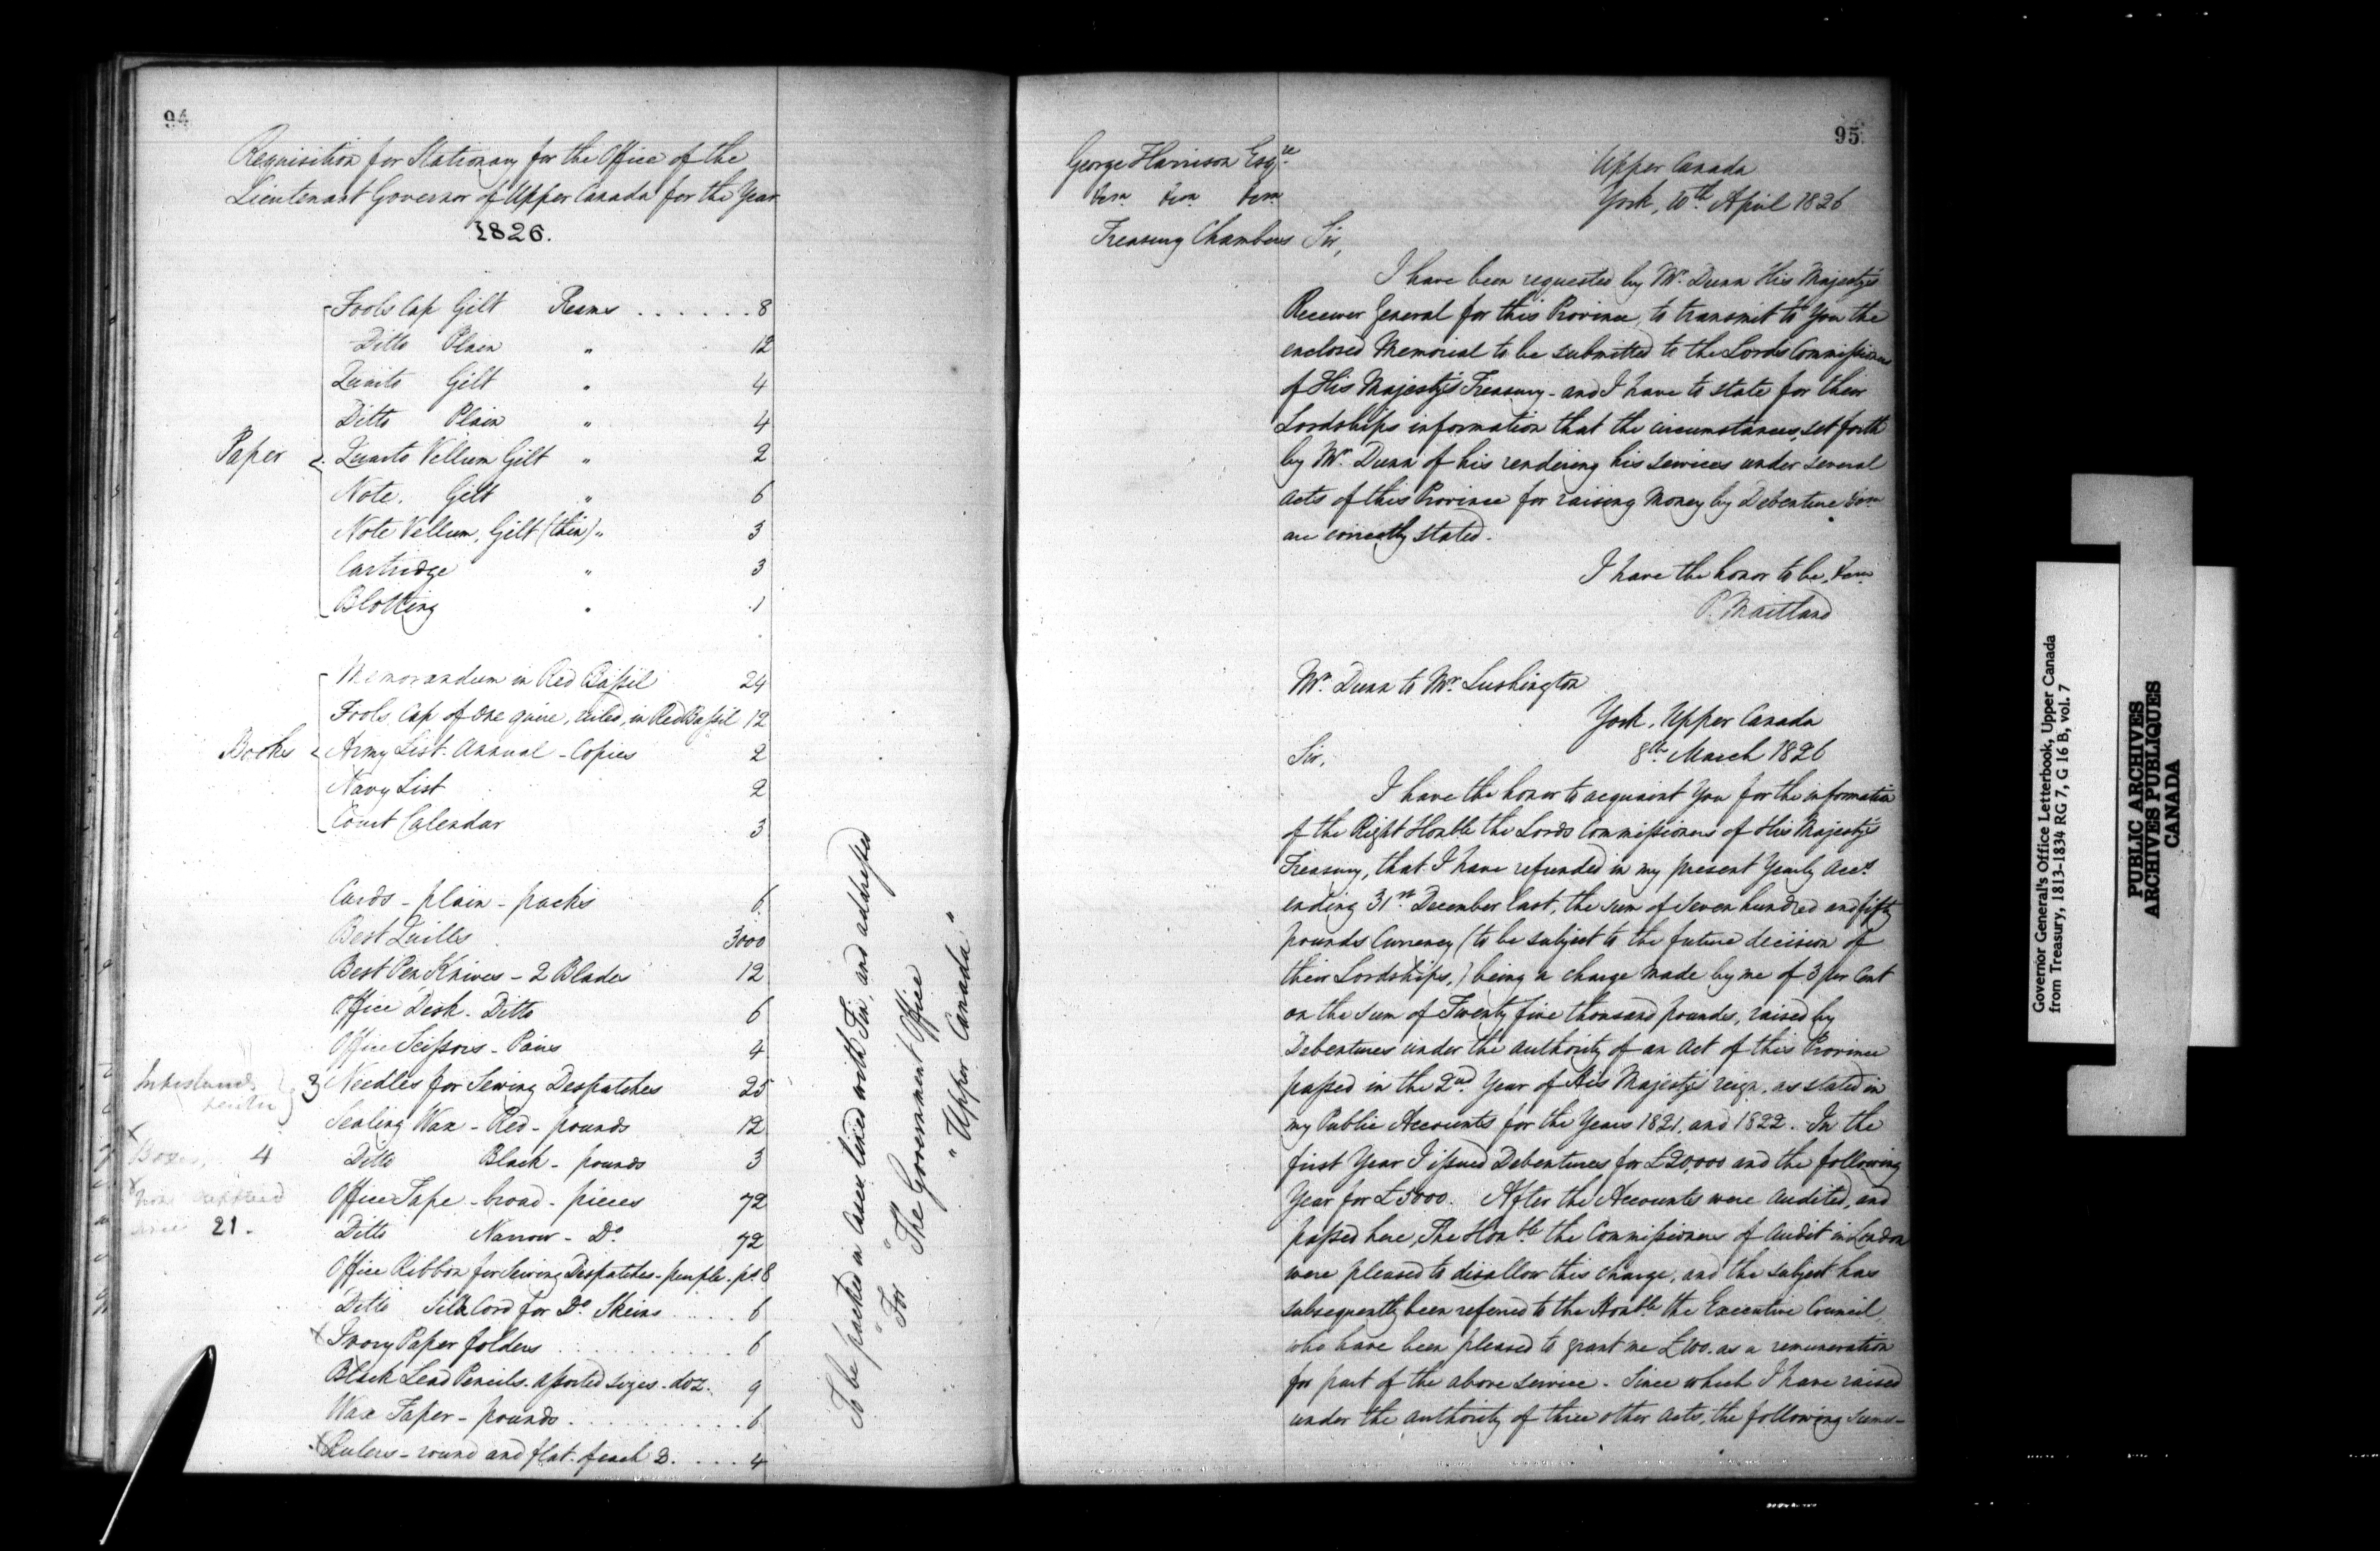 94
Requisition for Stationary for the Office of the
Lieutenant Governor of Upper Canada for the Year
1826.
Fools Cap Gilt Reams . . . . . . 8
Ditto Plain " 12
Quarto Gilt " 4
Ditto Plain " 4
Paper Quarto Vellum Gilt " 2
Note. Gilt " 6
Note Vellum, Gilt (thin) " 3
Cartridge " 3
Blotting " 1
Memorandum in Red Bassil 24
Fools Cap of One quire, ruled, in Red Bassil 12
Books Army List. Annual - Copies 2
Navy List 2
Court Calendar 3
Cards - plain - packs 6
Best Quills 3000
Best Pen Knives - 2 Blades 12
Office Desk - Ditto 6
Office Scissors - Pairs 4
Inkstands 3
Needles for Sewing Despatches 25
Sealing Wax - Red - pounds 12
Boxes, 4
Ditto Black - pounds 3
Office Tape - broad - pieces 72
21.
Ditto Narrow - Do. 72
Office Ribbon for Sewing Despatches - purple - ps. 8
Ditto Silk Cord for Do Skeins . . . . . 6
x Ivory Paper folders . . . . . . . . . 6
Black Lead Pencils. assorted sizes - doz. 9
Wax Taper - pounds . . . . . . . . . 6
x Rulers - round and flat - of each 2. . . . . 4
To be packed in Cases lined with Tin, and addressed
" For " The Government Office
" " Upper Canada "
95.
George Harrison Esqre
&c. &c. &c.
Treasury Chambers
Upper Canada
York, 10th April 1826
Sir,
I have been requested by Mr. Dunn His Majesty's
Receiver General for this Province, to transmit to You the
enclosed Memorial to be submitted to the Lords Commissioners
of His Majesty's Treasury - and I have to state for their
Lordships information that the circumstances, set forth
by Mr. Dunn of his rendering his services under several
acts of this Province for raising Money by Debenture &c.
are correctly stated.
I have the honor to be, &c.
P. Maitland
Mr. Dunn to Mr. Lushington
York, Upper Canada
8th March 1826
Sir,
I have the honor to acquaint You for the information
of the Right Honble the Lords Commissioners of His Majesty's
Treasury, that I have refunded in my present Yearly Acct.
ending 31st December last, the sum of Seven hundred and fifty
pounds Currency (to be subject to the future decision of
their Lordships,) being a charge made by me of 3 per Cent
on the sum of Twenty five thousand pounds, raised by
Debentures under the authority of an Act of this Province
passed in the 2nd. Year of His Majesty's reign, as stated in
my Public Accounts for the Years 1821, and 1822. In the
first Year I issued Debentures for £20,000 and the following
Year for £5000. After the Accounts were audited, and
passed here, The Honble the Commissioners of Audit in London
were pleased to disallow this charge, and the subject has
subsequently been referred to the Honble. the Executive Council,
who have been pleased to grant me £100. as a remuneration
for part of the above service. Since which I have raised
under the authority of three other Acts, the following sums -
Governor General's Office Letterbook, Upper Canada
from Treasury, 1813-1834 RG 7, G 16 B, vol. 7
PUBLIC ARCHIVES
ARCHIVES PUBLIQUES
CANADA